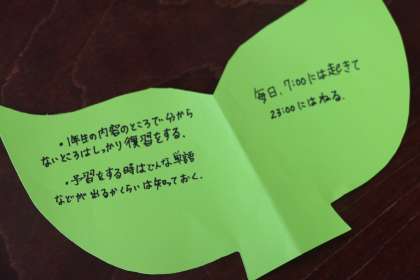 ・1年生の内容のところで分から
ないところはしっかり復習をする。
・予習をする時はどんな単語
などが出るかくらいは知っておく。
毎日、7:00には起きて
23:00にはねる。